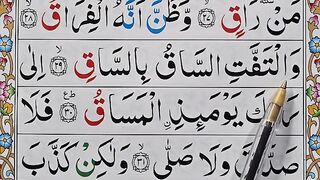 مَنْ رَاقٍ ۙ﴿۲۷﴾ وَّظَنَّ اَنَّهُ الْفِرَاقُ ۙ﴿۲۸﴾
وَالْتَفَّتِ السَّاقُ بِالسَّاقِ ۙ﴿۲۹﴾ اِلٰى
يَوْمَئِذِ اِۨلْمَسَاقُ ؕ﴿۳۰﴾ فَلَا
صَدَّقَ وَلَا صَلّٰى ۙ﴿۳۱﴾ وَلٰكِنْ كَذَّبَ